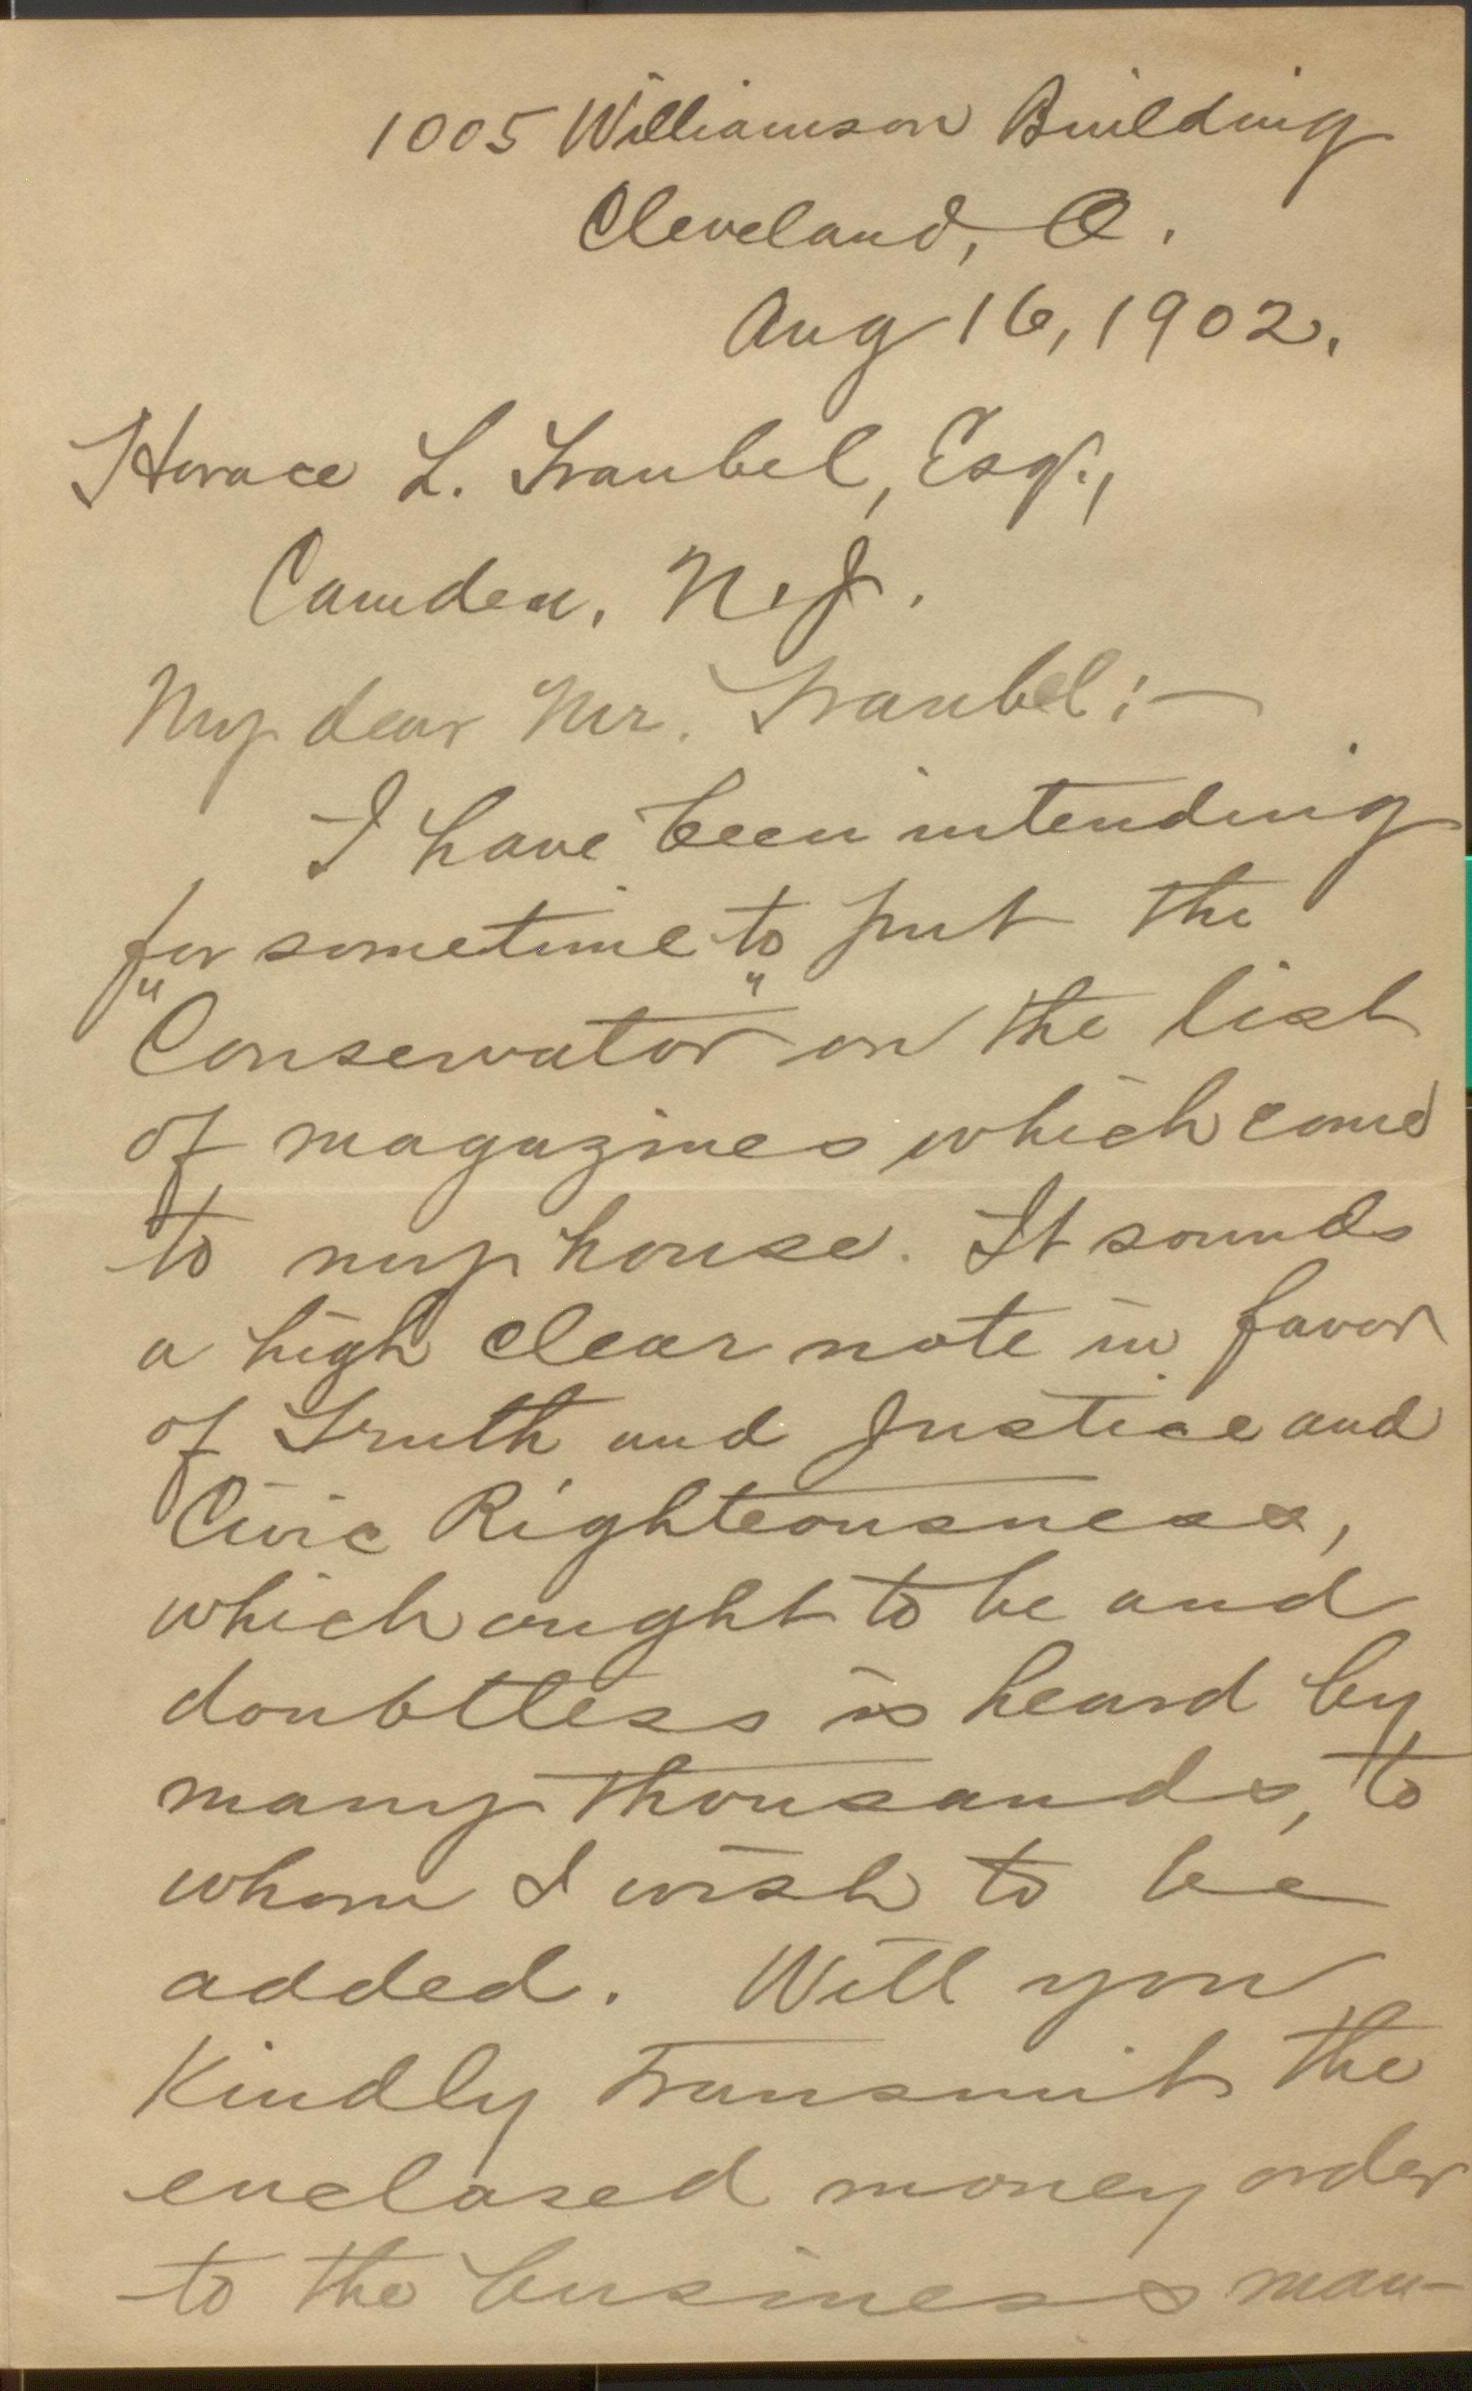 1005 Williamson Building
Cleveland, O.
Aug 16, 1902.
Horace L. Traubel, Esq.,
Camden, N.J.
My dear Mr. Traubel:—
I have been intending
for sometime to put the
"Conservator" on the list
of magazines which come
to my house. It sounds
a high clear note in favor
of Truth and Justice and
Civic Righteousness,
which ought to be and
doubtless is heard by
many thousands, to
whom I wish to be
added. Will you
kindly transmit the
enclosed money order
to the business man-